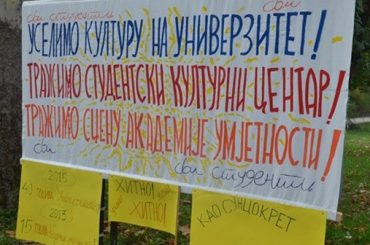 сви студенти
сви
УСЕЛИМО КУЛТУРУ НА УНИВЕРЗИТЕТ!
ТРАЖИМО СТУДЕНТСКИ КУЛТУРНИ ЦЕНТАР!
ТРАЖИМО СЦЕНУ АКАДЕМИЈЕ УМЈЕТНОСТИ!
сви
сви студенти
2015
40 година
2013
15
ХИТНО!
ХИТНО!
КАО СУНЦОКРЕТ